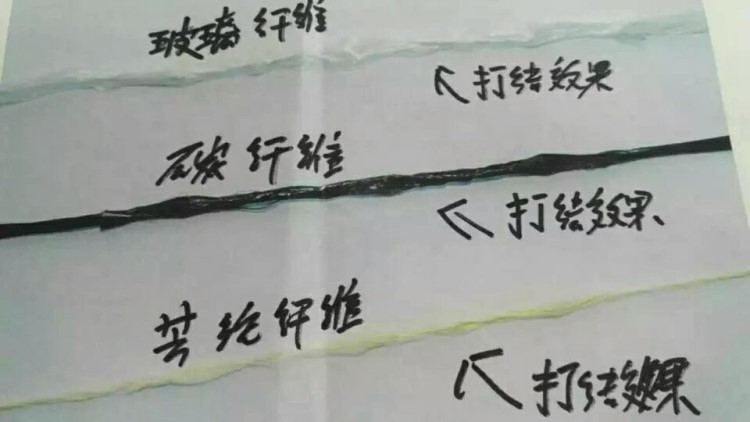 玻璃纤维
打结效果
碳纤维
打结效果
芳纶纤维
打结效果